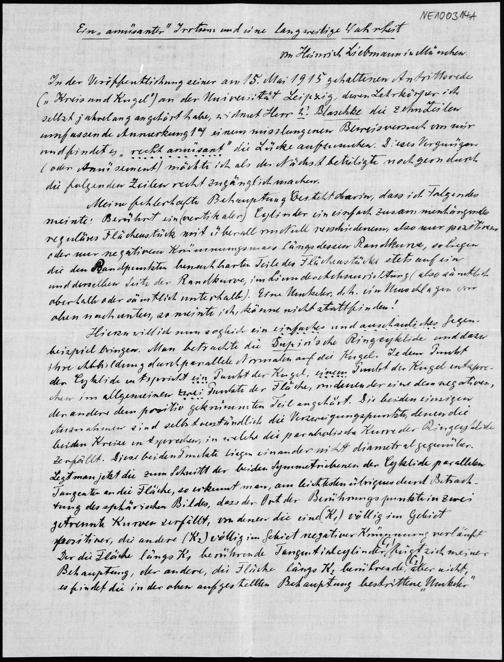 NE1003 14A
Ein "amüsanter" Irrtum und eine langweilige Wahrheit
von Heinrich Liebmann in München.
In der Veröffentlichung seiner am 15. Mai 1915 gehaltenen Antrittsrede
("Kreis und Kugel") an der Universität Leipzig, deren Lehrkörper ich
selbst jahrelang angehört habe, widmet Herr W. Blaschke die zehn Zeilen
umfassende Anmerkung 14 einem misslungenen Beweisversuch von mir
und findet es "recht amüsant" die Lücke aufzusuchen. Dieses Vergnügen
(oder Amüsement) möchte ich als der Nächstbeteiligte noch gern durch
die folgenden Zeilen recht zugänglich machen.
Meine fehlerhafte Behauptung besteht darin, dass ich Folgendes
meinte: Berührt ein (vertikaler) Cylinder ein einfach zusammenhängendes
reguläres Flächenstück mit überall von Null verschiedenem, also nur positivem
oder nur negativem Krümmungsmass längs dessen Randkurve, so liegen
die den Randpunkten benachbarten Teile des Flächenstücks stets auf ein
und derselben Seite der Randkurve, im Sinne der Höhenrichtung (also sämtlich
oberhalb oder sämtlich unterhalb). Eine Umkehr, d.h. ein Umschlagen von
oben nach unten, so meinte ich, könne nicht stattfinden.
Hierzu will ich nun sogleich ein einfaches und anschauliches Gegen-
beispiel bringen. Man betrachte die Dupin'sche Ringcyklide und dazu
ihre Abbildung durch parallele Normalen auf die Kugel. Jedem Punkt
der Cyklide entspricht ein Punkt der Kugel, einem Punkt der Kugel entspre-
chen im allgemeinen zwei Punkte der Fläche, von denen der eine dem negativen,
der andere dem positiv gekrümmten Teil angehört. Die beiden einzigen
Ausnahmen sind selbstverständlich die Verzweigungspunkte, denen die
beiden Kreise entsprechen, in welche die parabolische Kurve der Ringcyklide
zerfällt. Diese beiden Punkte liegen einander nicht diametral gegenüber.
Legt man jetzt die zum Schnitt der beiden Symmetrieebenen der Cyklide parallelen
Tangenten an die Fläche, so erkennt man, am leichtesten übrigens durch Betrach-
tung des sphärischen Bildes, dass der Ort der Berührungspunkte in zwei
getrennte Kurven zerfällt, von denen die eine (K₁) völlig im Gebiet
positiver, die andere (K₂) völlig im Gebiet negativer Krümmung verläuft
Der die Fläche längs K₁ berührende Tangentialcylinder fügt sich meiner
Behauptung, der andere, die Fläche längs K₂ berührende, aber nicht,
es findet die in der oben aufgestellten Behauptung bestrittene "Umkehr"